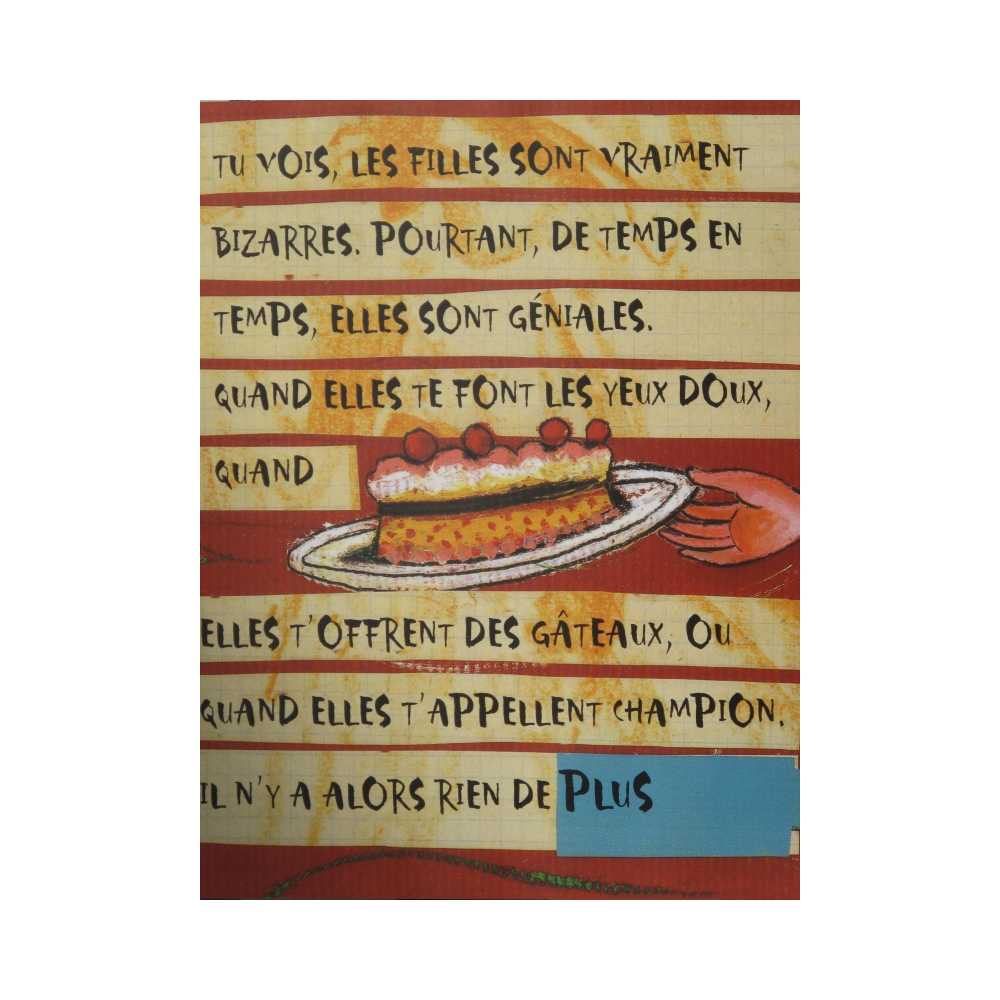 TU VOIS, LES FILLES SONT VRAIMENT
BIZARRES. POURTANT, DE TEMPS EN
TEMPS, ELLES SONT GÉNIALES.
QUAND ELLES TE FONT LES YEUX DOUX,
QUAND
ELLES T'OFFRENT DES GÂTEAUX, OU
QUAND ELLES T'APPELLENT CHAMPION.
IL N'Y A ALORS RIEN DE PLUS